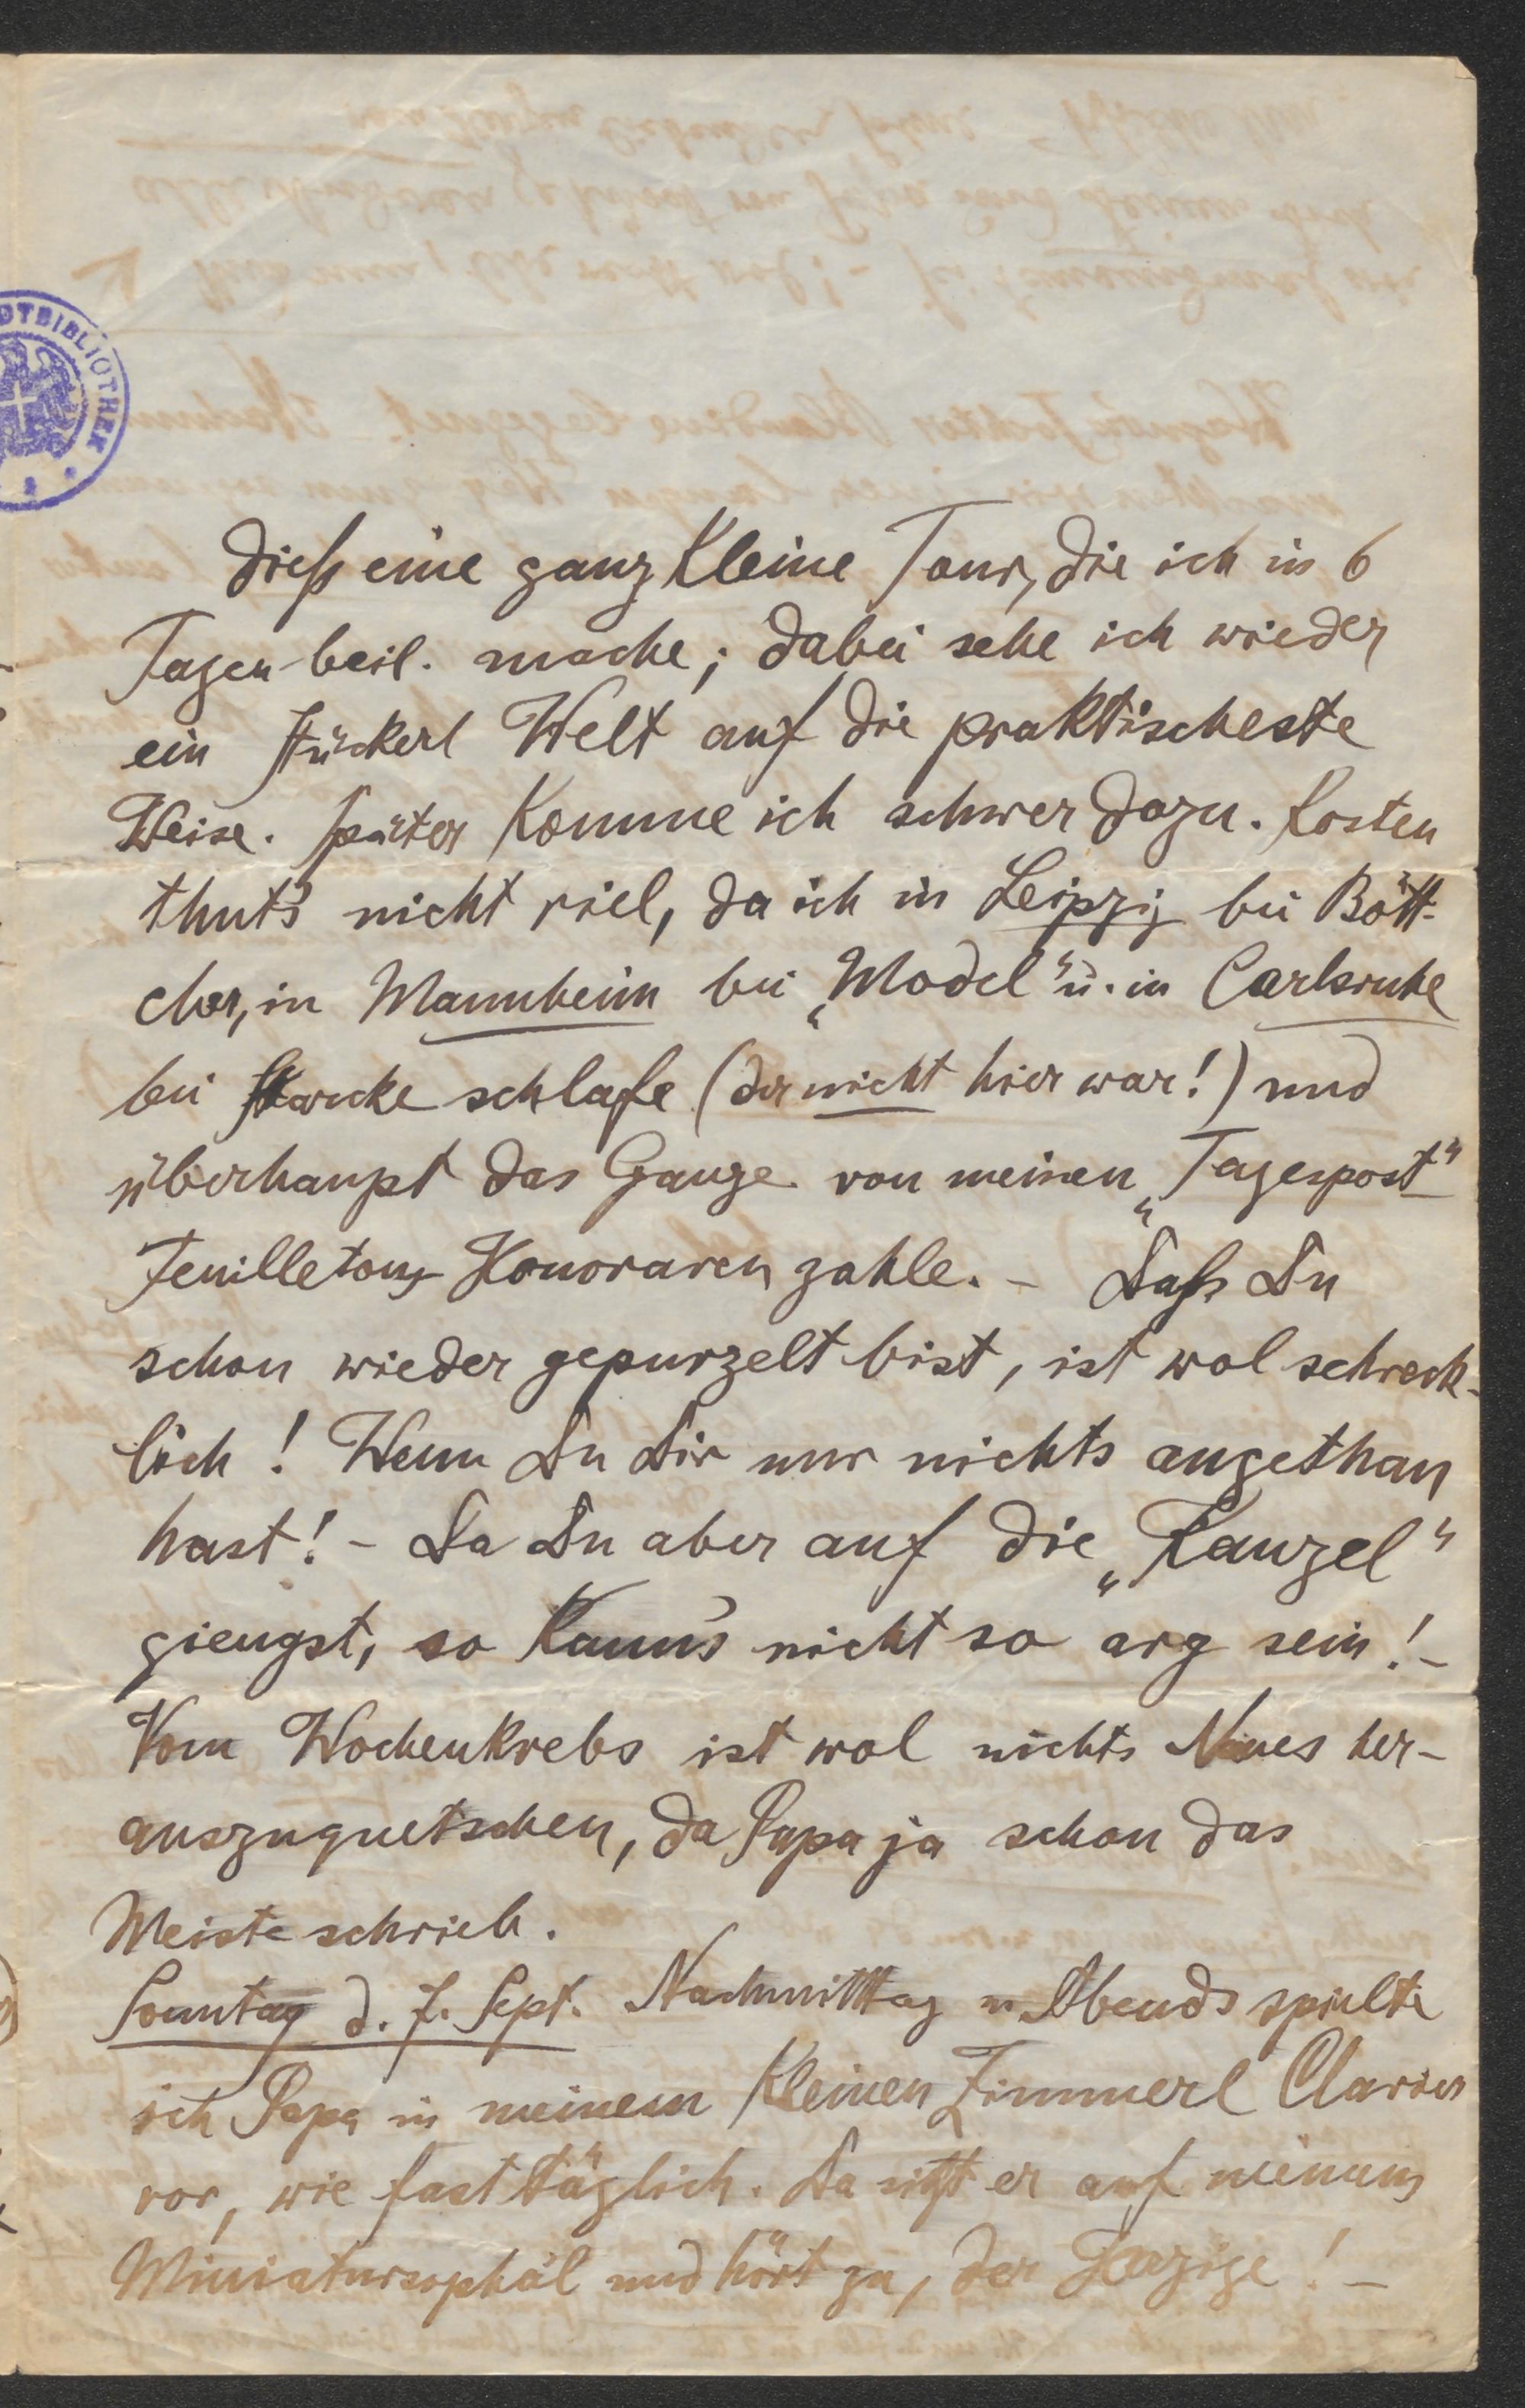 DTBIBLIOTHEK
Dieß eine ganz kleine Tour, die ich in 6
Tagen beil. mache; dabei sehe ich wieder
ein Stückerl Welt auf die praktischeste
Weise. Später komme ich schwer dazu. Kosten
thut's nicht viel, da ich in Leipzig bei Bött-
cher, in Mannheim bei „Model" u. in Carlsruhe
bei Starcke schlafe (der nicht hier war!) und
überhaupt das Ganze von meinen „Tagespost"
Feuilletons Honoraren zahle. - Daß Du
schon wieder gepurzelt bist, ist wol schreck-
lich! Wenn Du Dir nur nichts angethan
hast! - Da Du aber auf die „Kanzel"
giengst, so kann's nicht so arg sein! -
Vom Wochenkrebs ist wol nichts Neues her-
auszuquetschen, da Papa ja schon das
Meiste schrieb.
Sonntag d. 7. Sept. Nachmittag u. Abends spielte
ich Papa in meinem kleinen Zimmerl Clavier
vor, wie fast täglich. Da sitzt er auf meinem
Miniatursophäl und hört zu, der Herzige! -